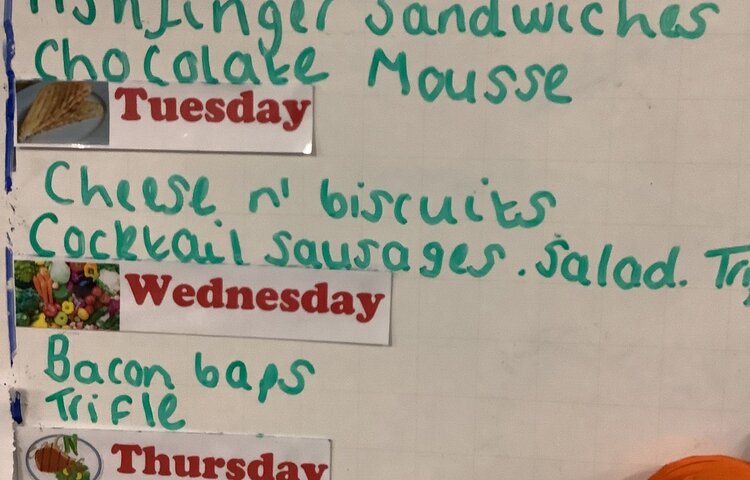 Fishfinger Sandwiches
Chocolate Mousse
Tuesday
Cheese n' biscuits
Cocktail sausages. Salad.
Wednesday
Bacon baps
Trifle
Thursday